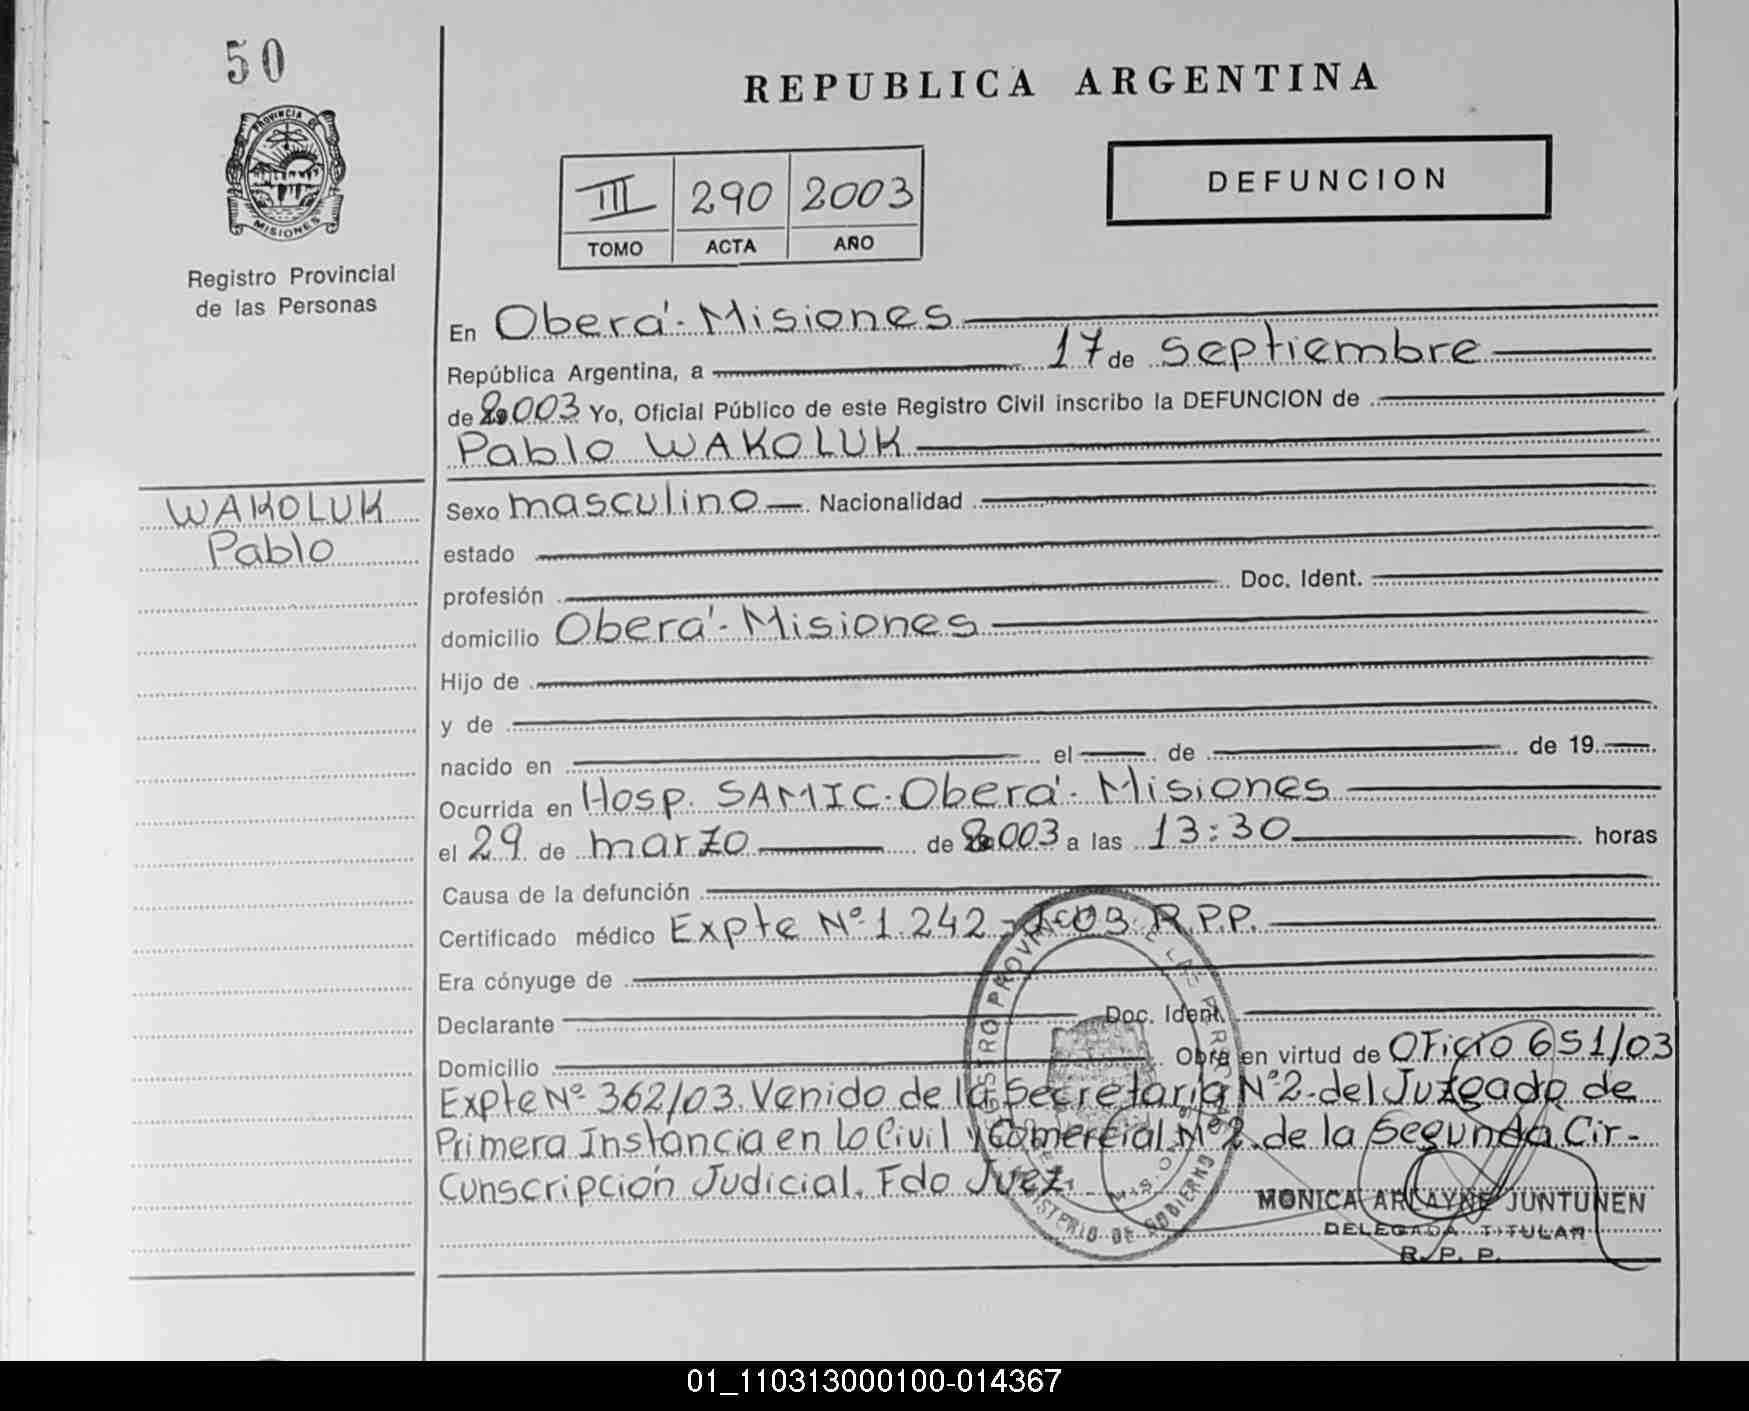 50
PROVINCIA DE
MISIONES
Registro Provincial
de las Personas
REPUBLICA ARGENTINA
III 290 2003
TOMO ACTA AÑO
DEFUNCION
En Oberá - Misiones
República Argentina, a 17 de septiembre
de 2.003 Yo, Oficial Público de este Registro Civil inscribo la DEFUNCION de
Pablo WAKOLUK
WAKOLUK
Pablo
Sexo masculino Nacionalidad
estado
profesión Doc. Ident.
domicilio Oberá - Misiones
Hijo de
y de
nacido en el de de 19
Ocurrida en Hosp. SAMIC. Oberá - Misiones
el 29 de marzo de 2.003 a las 13:30 horas
Causa de la defunción
Certificado médico Expte Nº 1.242 R.P.P.
Era cónyuge de
Declarante Doc. Ident.
Domicilio Obra en virtud de Oficio 651/03
Expte Nº 362/03. Venido de la Secretaría Nº2 del Juzgado de
Primera Instancia en lo Civil y Comercial Nº2 de la Segunda Cir-
cunscripción Judicial. Fdo Juez.
REGISTRO PROVINCIAL DE LAS PERSONAS
MINISTERIO DE GOBIERNO
MISIONES
MONICA ARLAYNE JUNTUNEN
DELEGADA TITULAR
R. P. P.
01_110313000100-014367